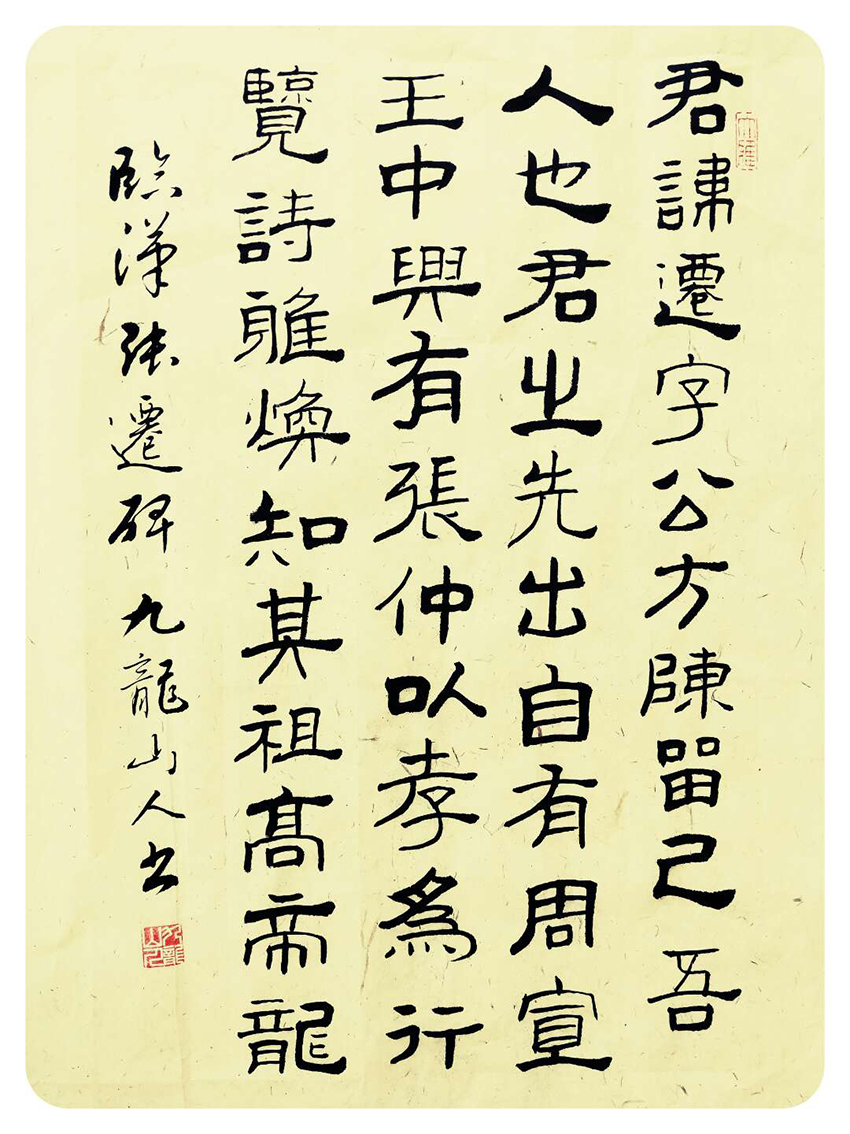 君諱遷字公方陳留己吾
人也君之先出自有周宣
王中興有張仲以孝爲行
覽詩雅煥知其祖髙帝龍
臨漢张遷碑 九龍山人书
九龍山人